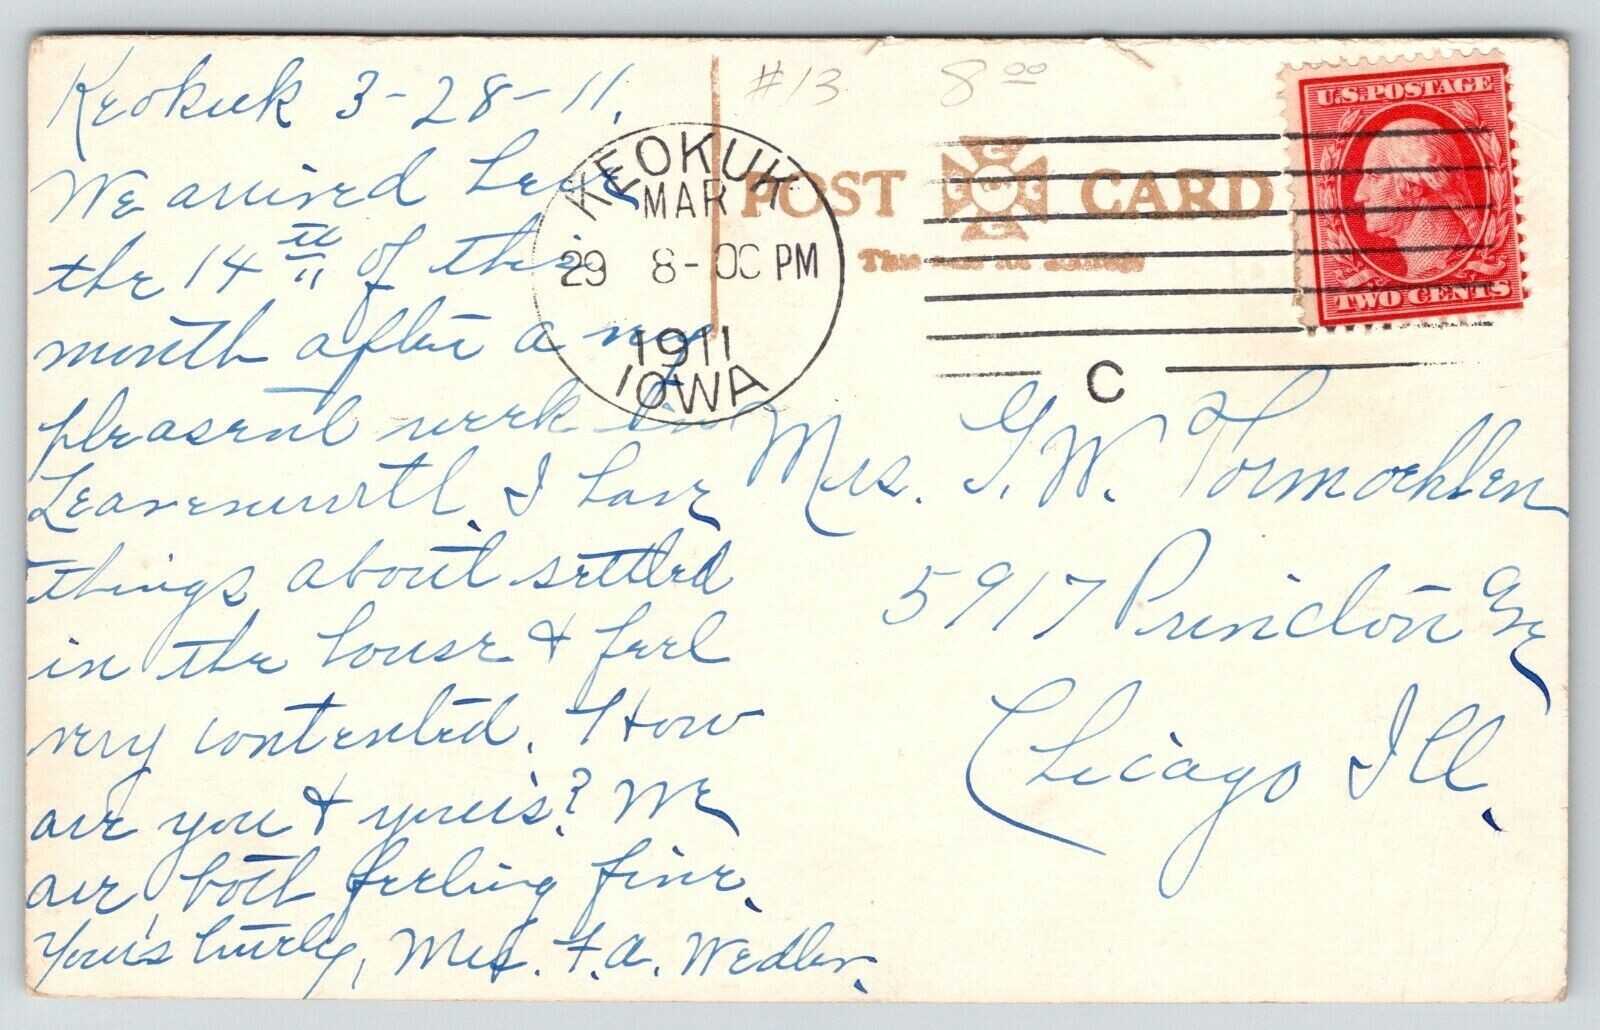 Keokuk 3-28-11.
We arrived here
the 14th of this
month after a very
pleasant week in
Leavenworth. I have
things about settled
in the house & feel
very contented. How
are you & yours? We
are both feeling fine.
Your's truly, Mrs. F. A. Wedler.
#13 8 00
KEOKUK
MAR
29 8-00 PM
1911
IOWA
POST CARD
This side for address
C
U.S. POSTAGE
TWO CENTS
Mrs. G. W. Formoehlen
5917 Princton Ave
Chicago Ill.